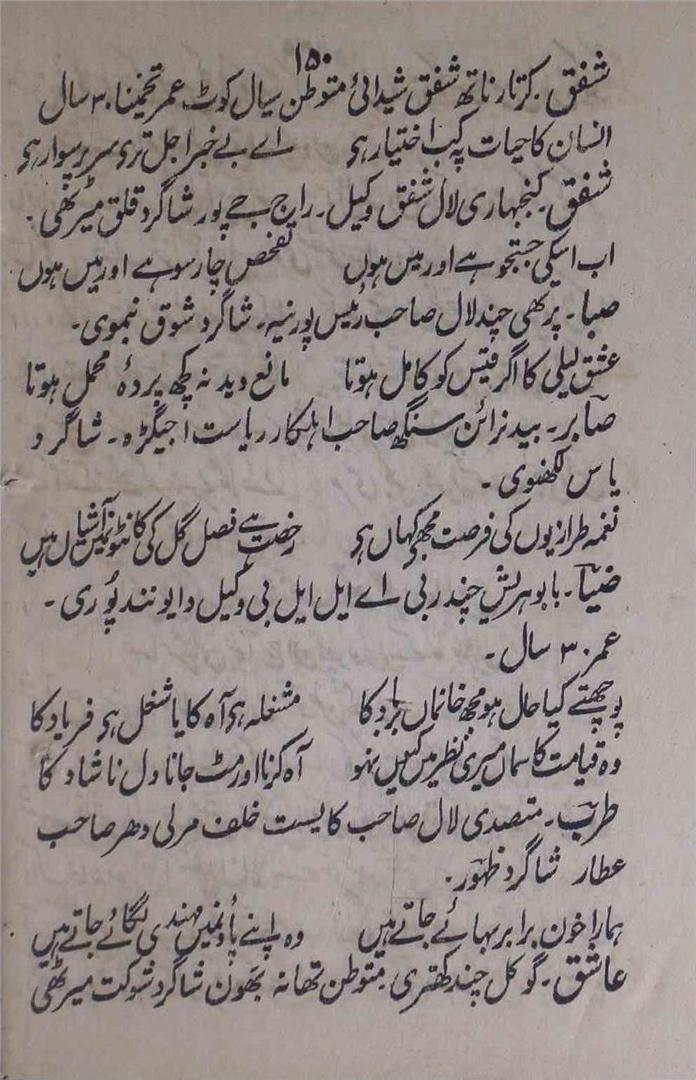 ۱۵۰
شفق ۔ کرتار ناتھ شفق شیدائی متوطن سیال کوٹ عمر تخمیناً ۳۰ سال
انسان کا حیات پہ کب اختیار ہی اے بے خبر اجل تری سر پر سوار ہی
شفق ۔ کنجبہاری لال شفق وکیل ۔ راج جے پور شاگرد قلق میرٹھی ۔
اب اسکی جستجو ہے اور میں ہوں تفحص چار سو ہے اور میں ہوں
صبا ۔ پرتھی چند لال صاحب رئیس پورنیہ ۔ شاگرد شوق نیموی ۔
عشق لیلی کا اگر قیس کو کامل ہوتا مانع دید نہ کچھ پردۂ محمل ہوتا
صابر ۔ بید نرائن سنگھ صاحب اہلکار ریاست اجیگڑہ ۔ شاگرد
یاس لکھنوی ۔
نغمہ طرازیوں کی فرصت مجھی کہاں ہی رخصت ہے فصل گل کی کانٹونمیں آشیاں ہیں
ضیا ۔ بابو ہریش چندر بی اے ایل ایل بی وکیل دایو نند پوری ۔
عمر ۳۰ سال ۔
پوچھتے کیا حال ہو مجھ خانماں برباد کا مشغلہ ہی آہ کا یا شغل ہی فریاد کا
وہ قیامت کا سماں میری نظر میں کیوں نہو آہ کرنا اور مٹ جانا دل ناشاد کا
طرب ۔ متصدی لال صاحب کایست خلف مرلی دھر صاحب
عطار شاگرد ظہور ۔
ہمارا خون برابر بہائے جاتے ہیں وہ اپنے پاؤنمیں مہندی لگائے جاتے ہیں
عاشق ۔ گوکل چند کھتری متوطن تھانہ بھون شاگرد شوکت میرٹھی